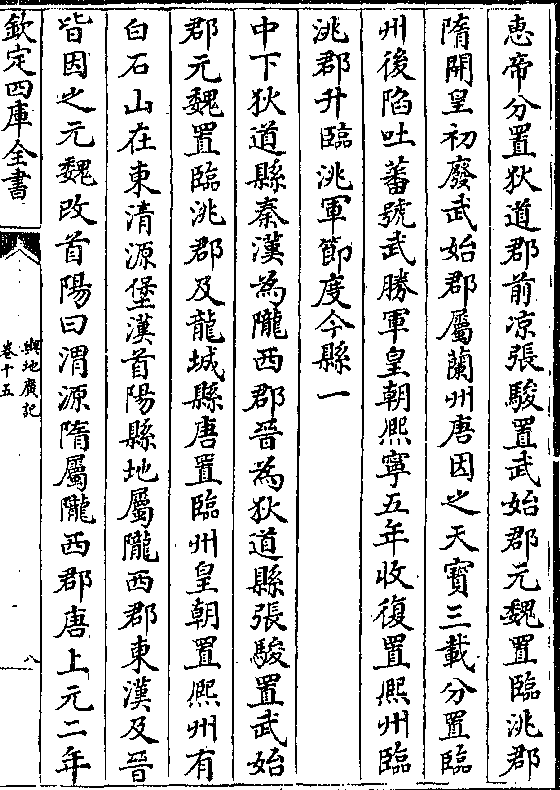 惠帝分置狄道郡前凉張駿置武始郡元魏置臨洮郡
隋開皇初廢武始郡屬蘭州唐因之天寳三載分置臨
州後陷吐蕃號武勝軍皇朝熈寧五年收復置熈州臨
洮郡升臨洮軍節度今縣一
中下狄道縣秦漢為隴西郡晉為狄道縣張駿置武始
郡元魏置臨洮郡及龍城縣唐置臨州皇朝置熈州有
白石山在東清源堡漢首陽縣地屬隴西郡東漢及晉
皆因之元魏改首陽曰渭源隋屬隴西郡唐上元二年
欽定四庫全書
輿地廣記
卷十五
八